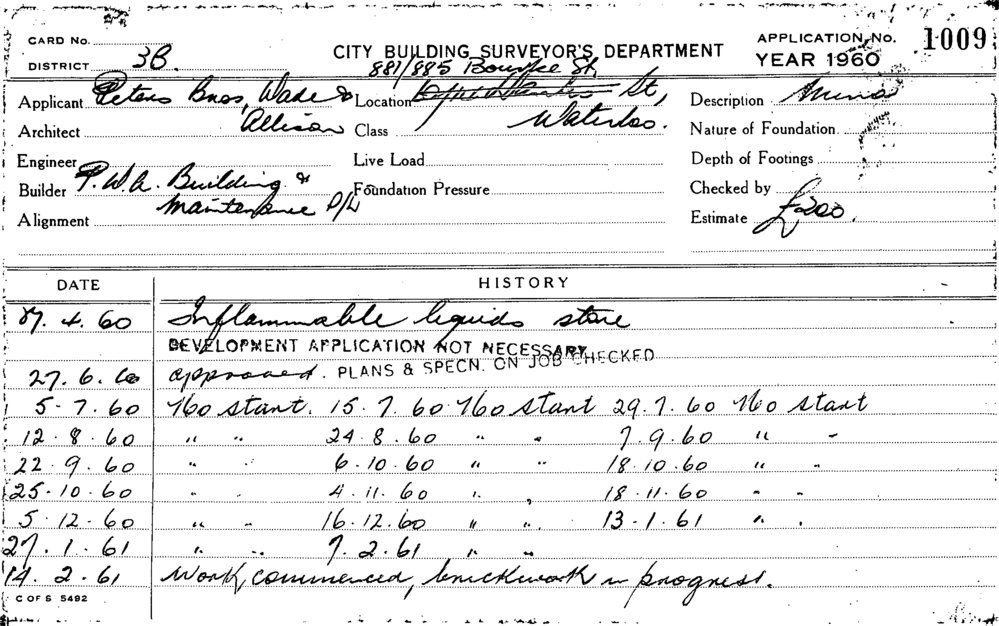 CARD No. CITY BUILDING SURVEYOR'S DEPARTMENT APPLICATION No. 1009
DISTRICT 3B. 881/885 Bourke St, YEAR 1960
Applicant Peters Bros, Wade & Location St, Description Minor
Architect Allison Class Waterloo. Nature of Foundation
Engineer Live Load Depth of Footings
Builder P.W.A. Building & Foundation Pressure Checked by
Alignment Maintenance P/L Estimate £200.
DATE HISTORY
4. 60 Inflammable liquids store
DEVELOPMENT APPLICATION NOT NECESSARY
27. 6. 60 approved. PLANS & SPECN. ON JOB CHECKED
5. 7. 60 No start. 15. 7. 60 No start 29. 7. 60 No start
12. 8. 60 " " 24. 8. 60 " " 7. 9. 60 " "
22. 9. 60 " " 6. 10. 60 " " 18. 10. 60 " "
25. 10. 60 " " 4. 11. 60 " " 18. 11. 60 " "
5. 12. 60 " " 16. 12. 60 " " 13. 1. 61 " "
27. 1. 61 " " 7. 2. 61 " "
14. 2. 61 Work commenced, brickwork in progress.
C OF S 5492